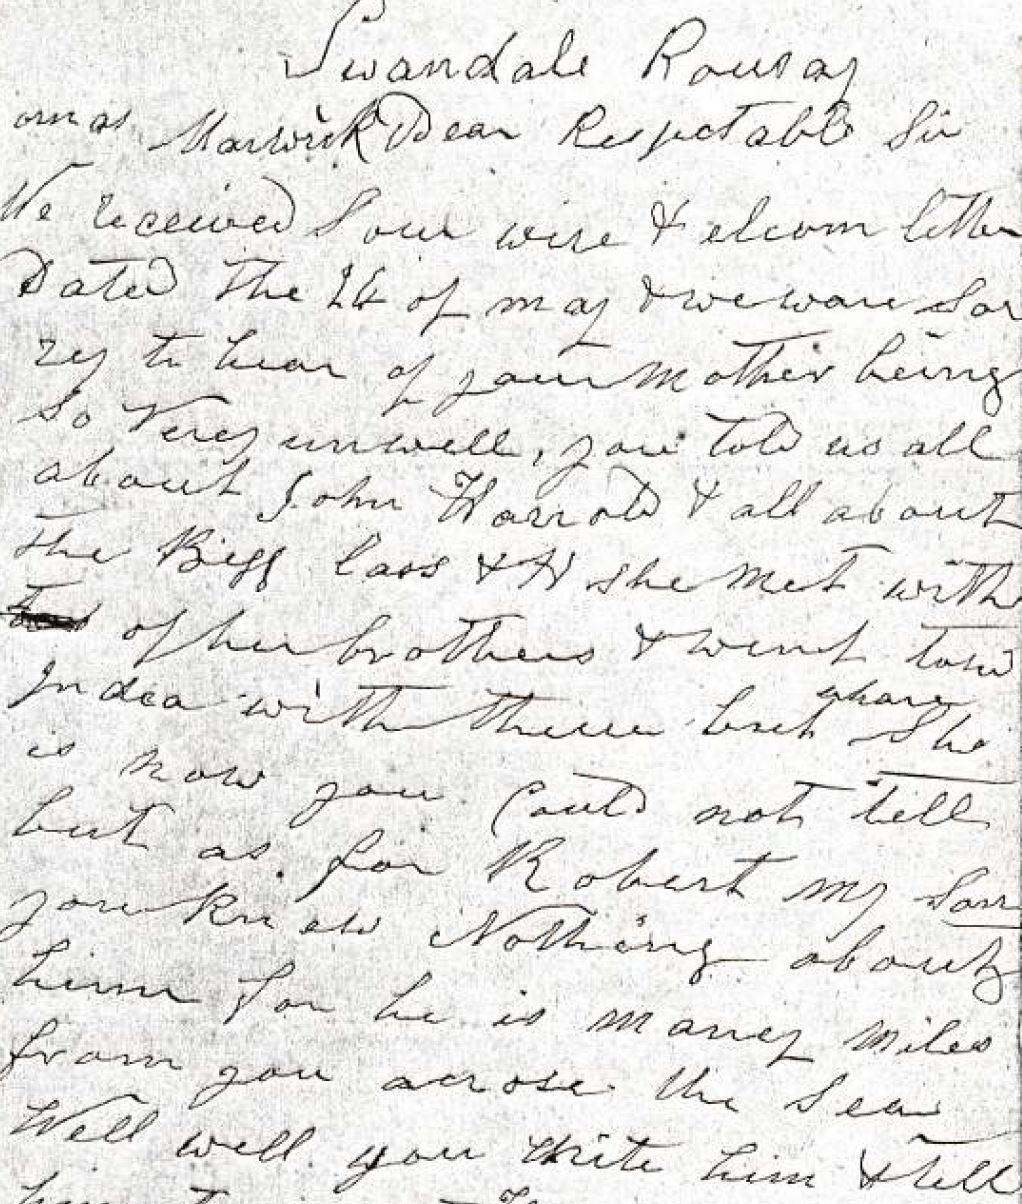 Swandale Rousay
omas Marwick Dear Respectable Sir
We received your wise & elcom letter
Dated the 24 of may & we ware Sor
rey to hear of your Mother being
So Very unwell, you told us all
about John Harrold & all about
the Bigg lass & H she met with
of her brothers & went tow
Indea with them but whare She
is now you Could not tell
but as for Robert my Son
you knew Nothing about
him for he is maney miles
from you acrose the Sea
Well well you write him & tell